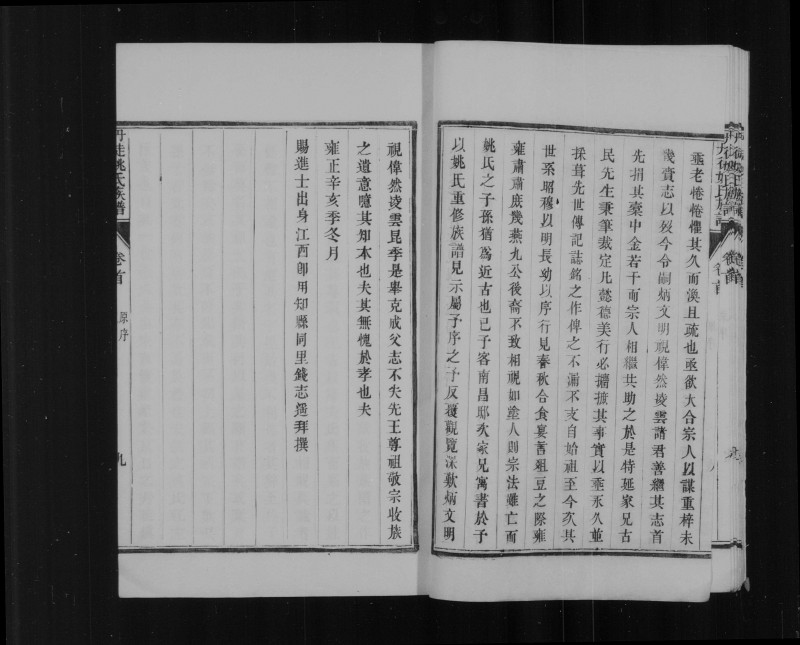 垂老惓惓懼其久而渙且疏也亟欲大合宗人以謀重梓未
幾賫志以歿今令嗣炳文明視偉然凌雲諸君善繼其志首
先捐其橐中金若干而宗人相繼共助之於是特延家兄古
民先生秉筆裁定凡懿德美行必攟摭其事實以垂永久並
採葺先世傳記誌銘之作俾之不漏不支自始祖至今亥其
世系昭穆以明長幼以序行見春秋合食宴言俎豆之際雍
雍肅肅庶幾燕九公後裔不致相視如塗人則宗法雖亡而
姚氏之子孫猶為近古也已予客南昌邸次家兄寓書於予
以姚氏重修族譜見示屬予序之予反覆觀覽深歎炳文明
視偉然凌雲昆季是舉克成父志不失先王尊祖敬宗收族
之遺意噫其知本也夫其無愧於孝也夫
雍正辛亥季冬月
賜進士出身江西即用知縣同里錢志遥拜撰
丹徒姚氏族譜
卷首
原序
九